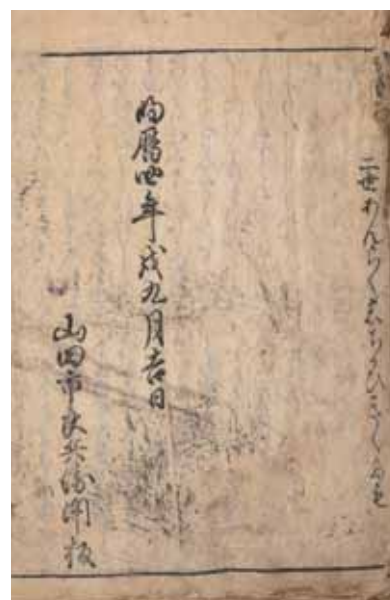 二世あんらく
明暦四年戌九月吉日
山田市良兵衛開板